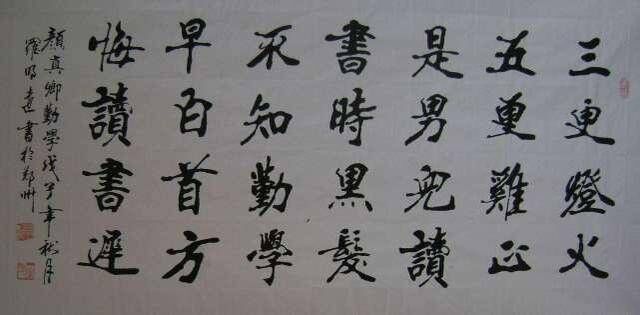 三更燈火
五更雞正
是男兒讀
書時黑髮
不知勤學
早白首方
悔讀書遲
顏真卿勤學戊子年秋月
羅明達書於郑州